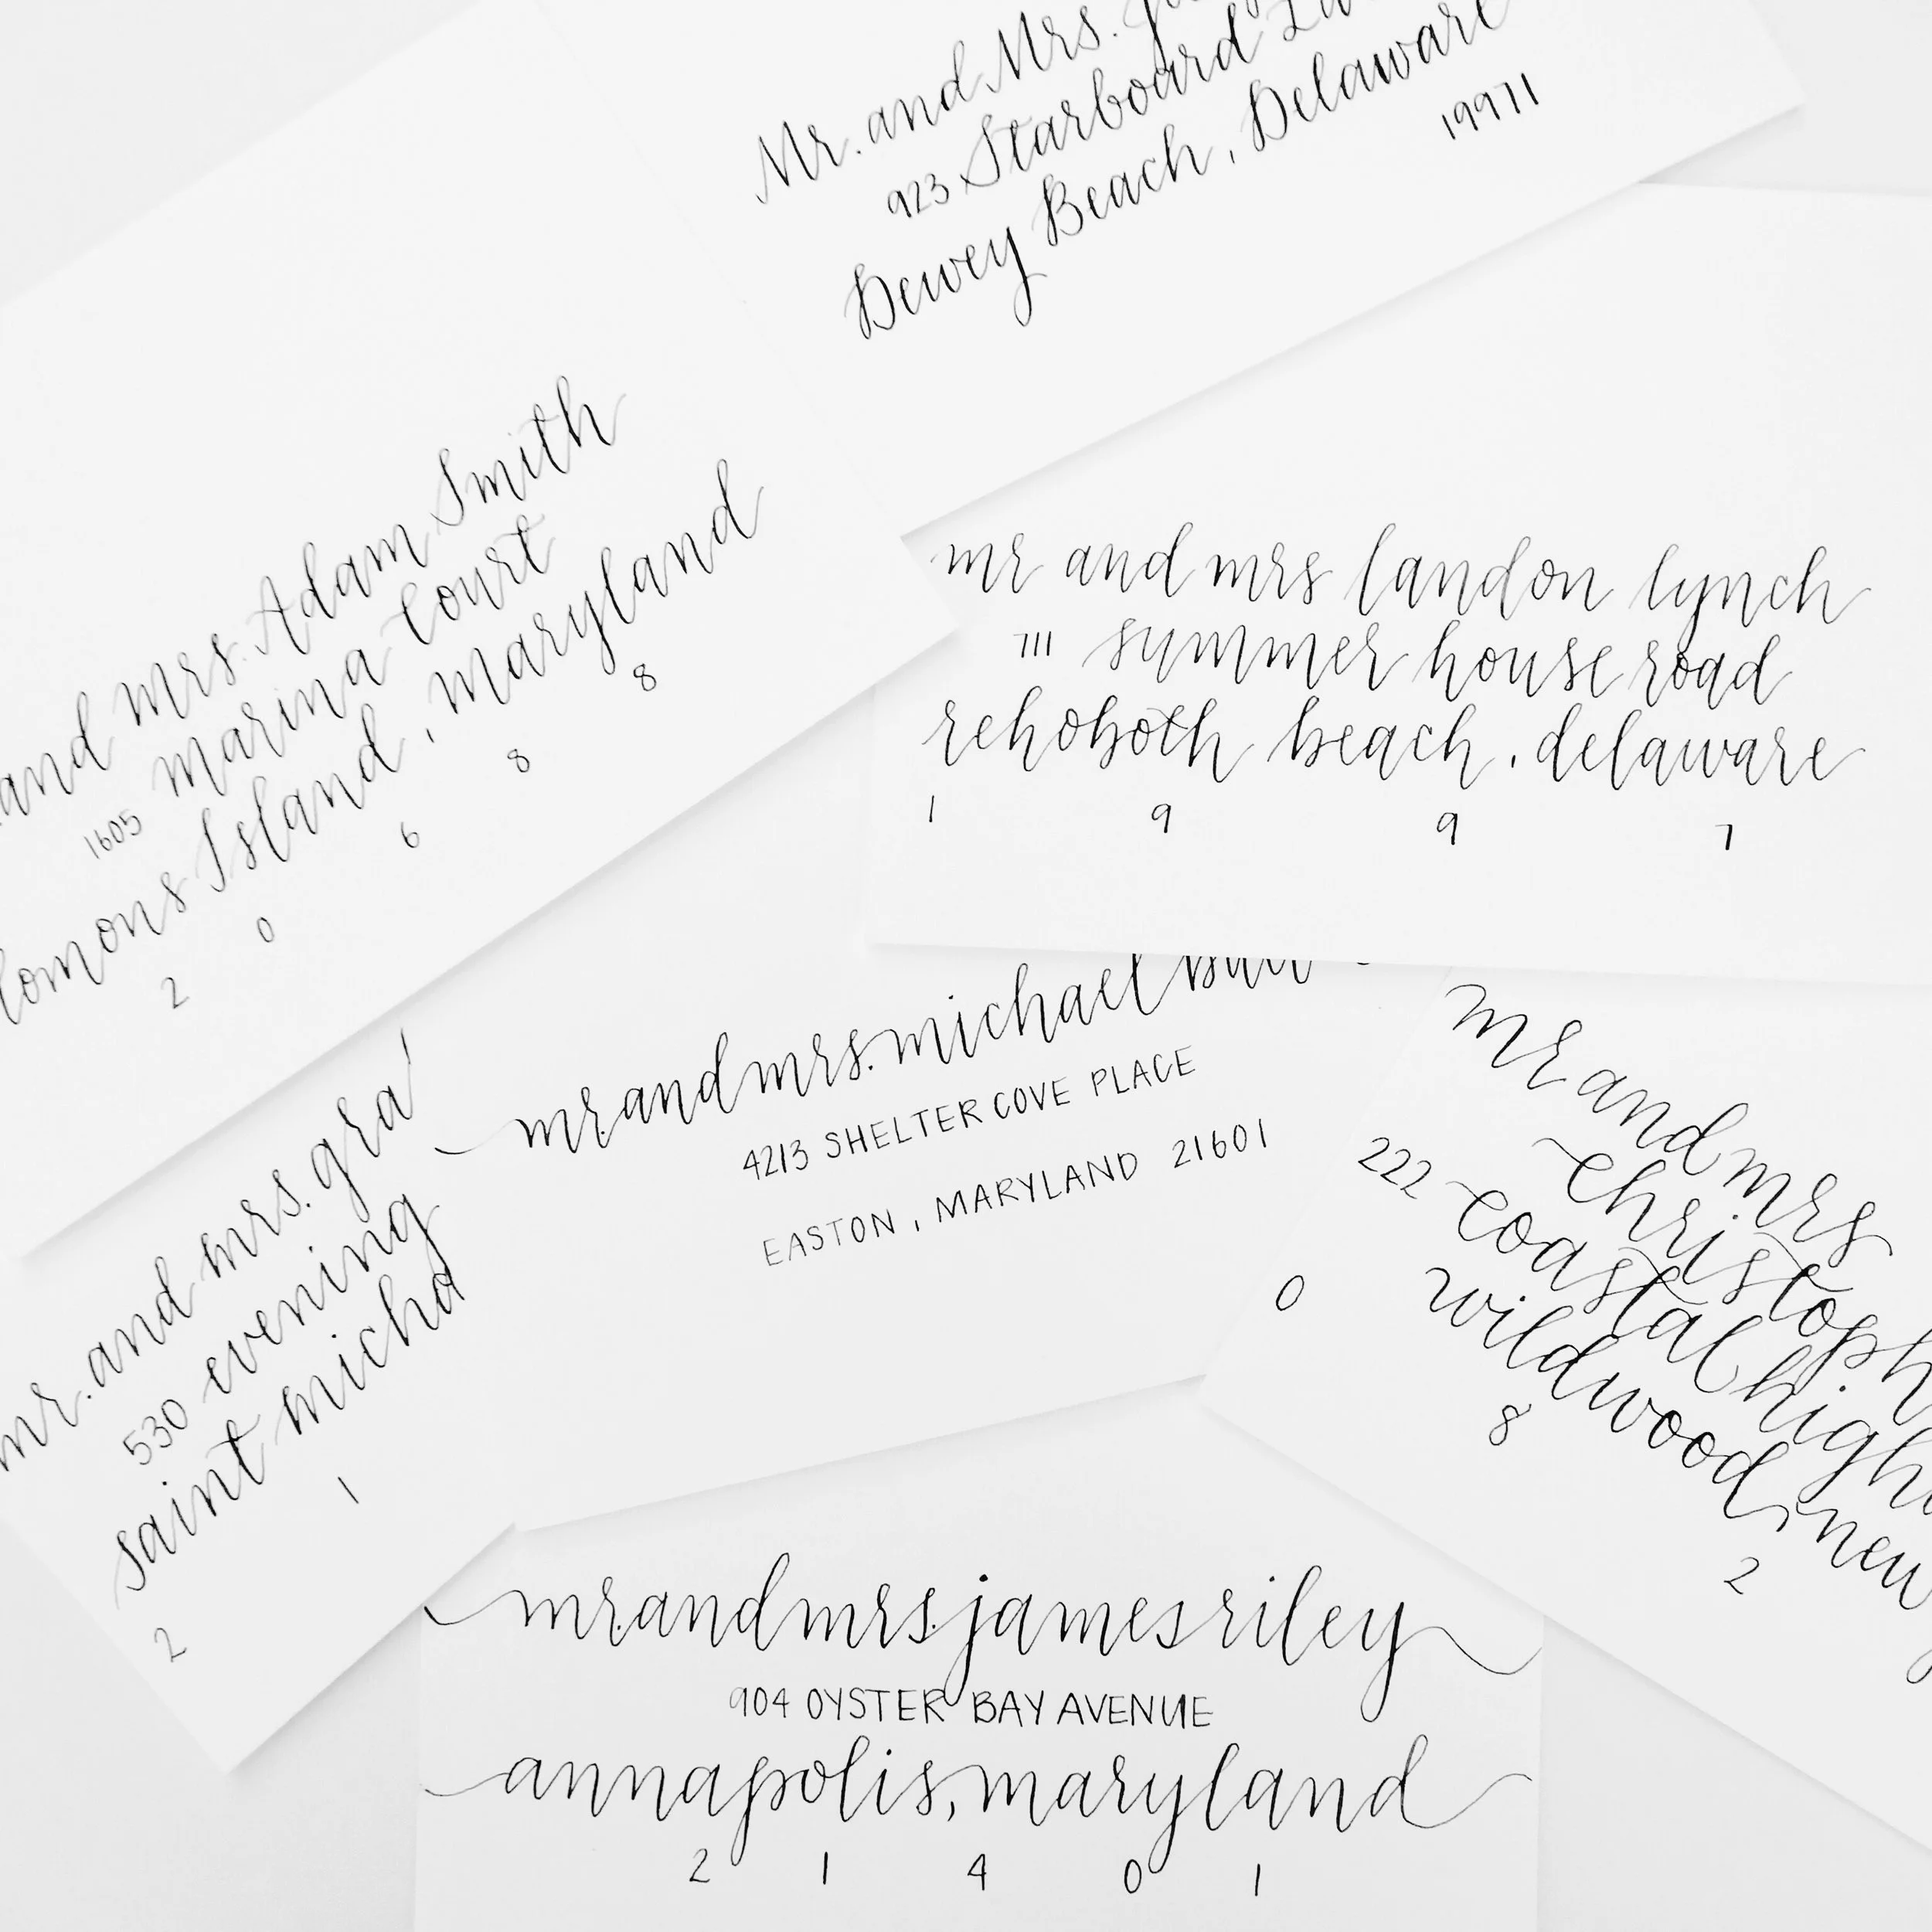 Mr. and Mrs.
923 Starboard
Dewey Beach, Delaware
19971
and mrs. Adam Smith
1605 marina court
Island, maryland
2 0 6 8 8
mr and mrs landon lynch
711 summer house road
rehoboth beach, delaware
1 9 9 7
mr. and mrs. michael
4213 SHELTER COVE PLACE
EASTON, MARYLAND 21601
mr and mrs
222 coastal
wildwood, new
0 8 2
mr. and mrs.
530 evening
saint
2 1
mr. and mrs. james riley
904 OYSTER BAY AVENUE
annapolis, maryland
2 1 4 0 1